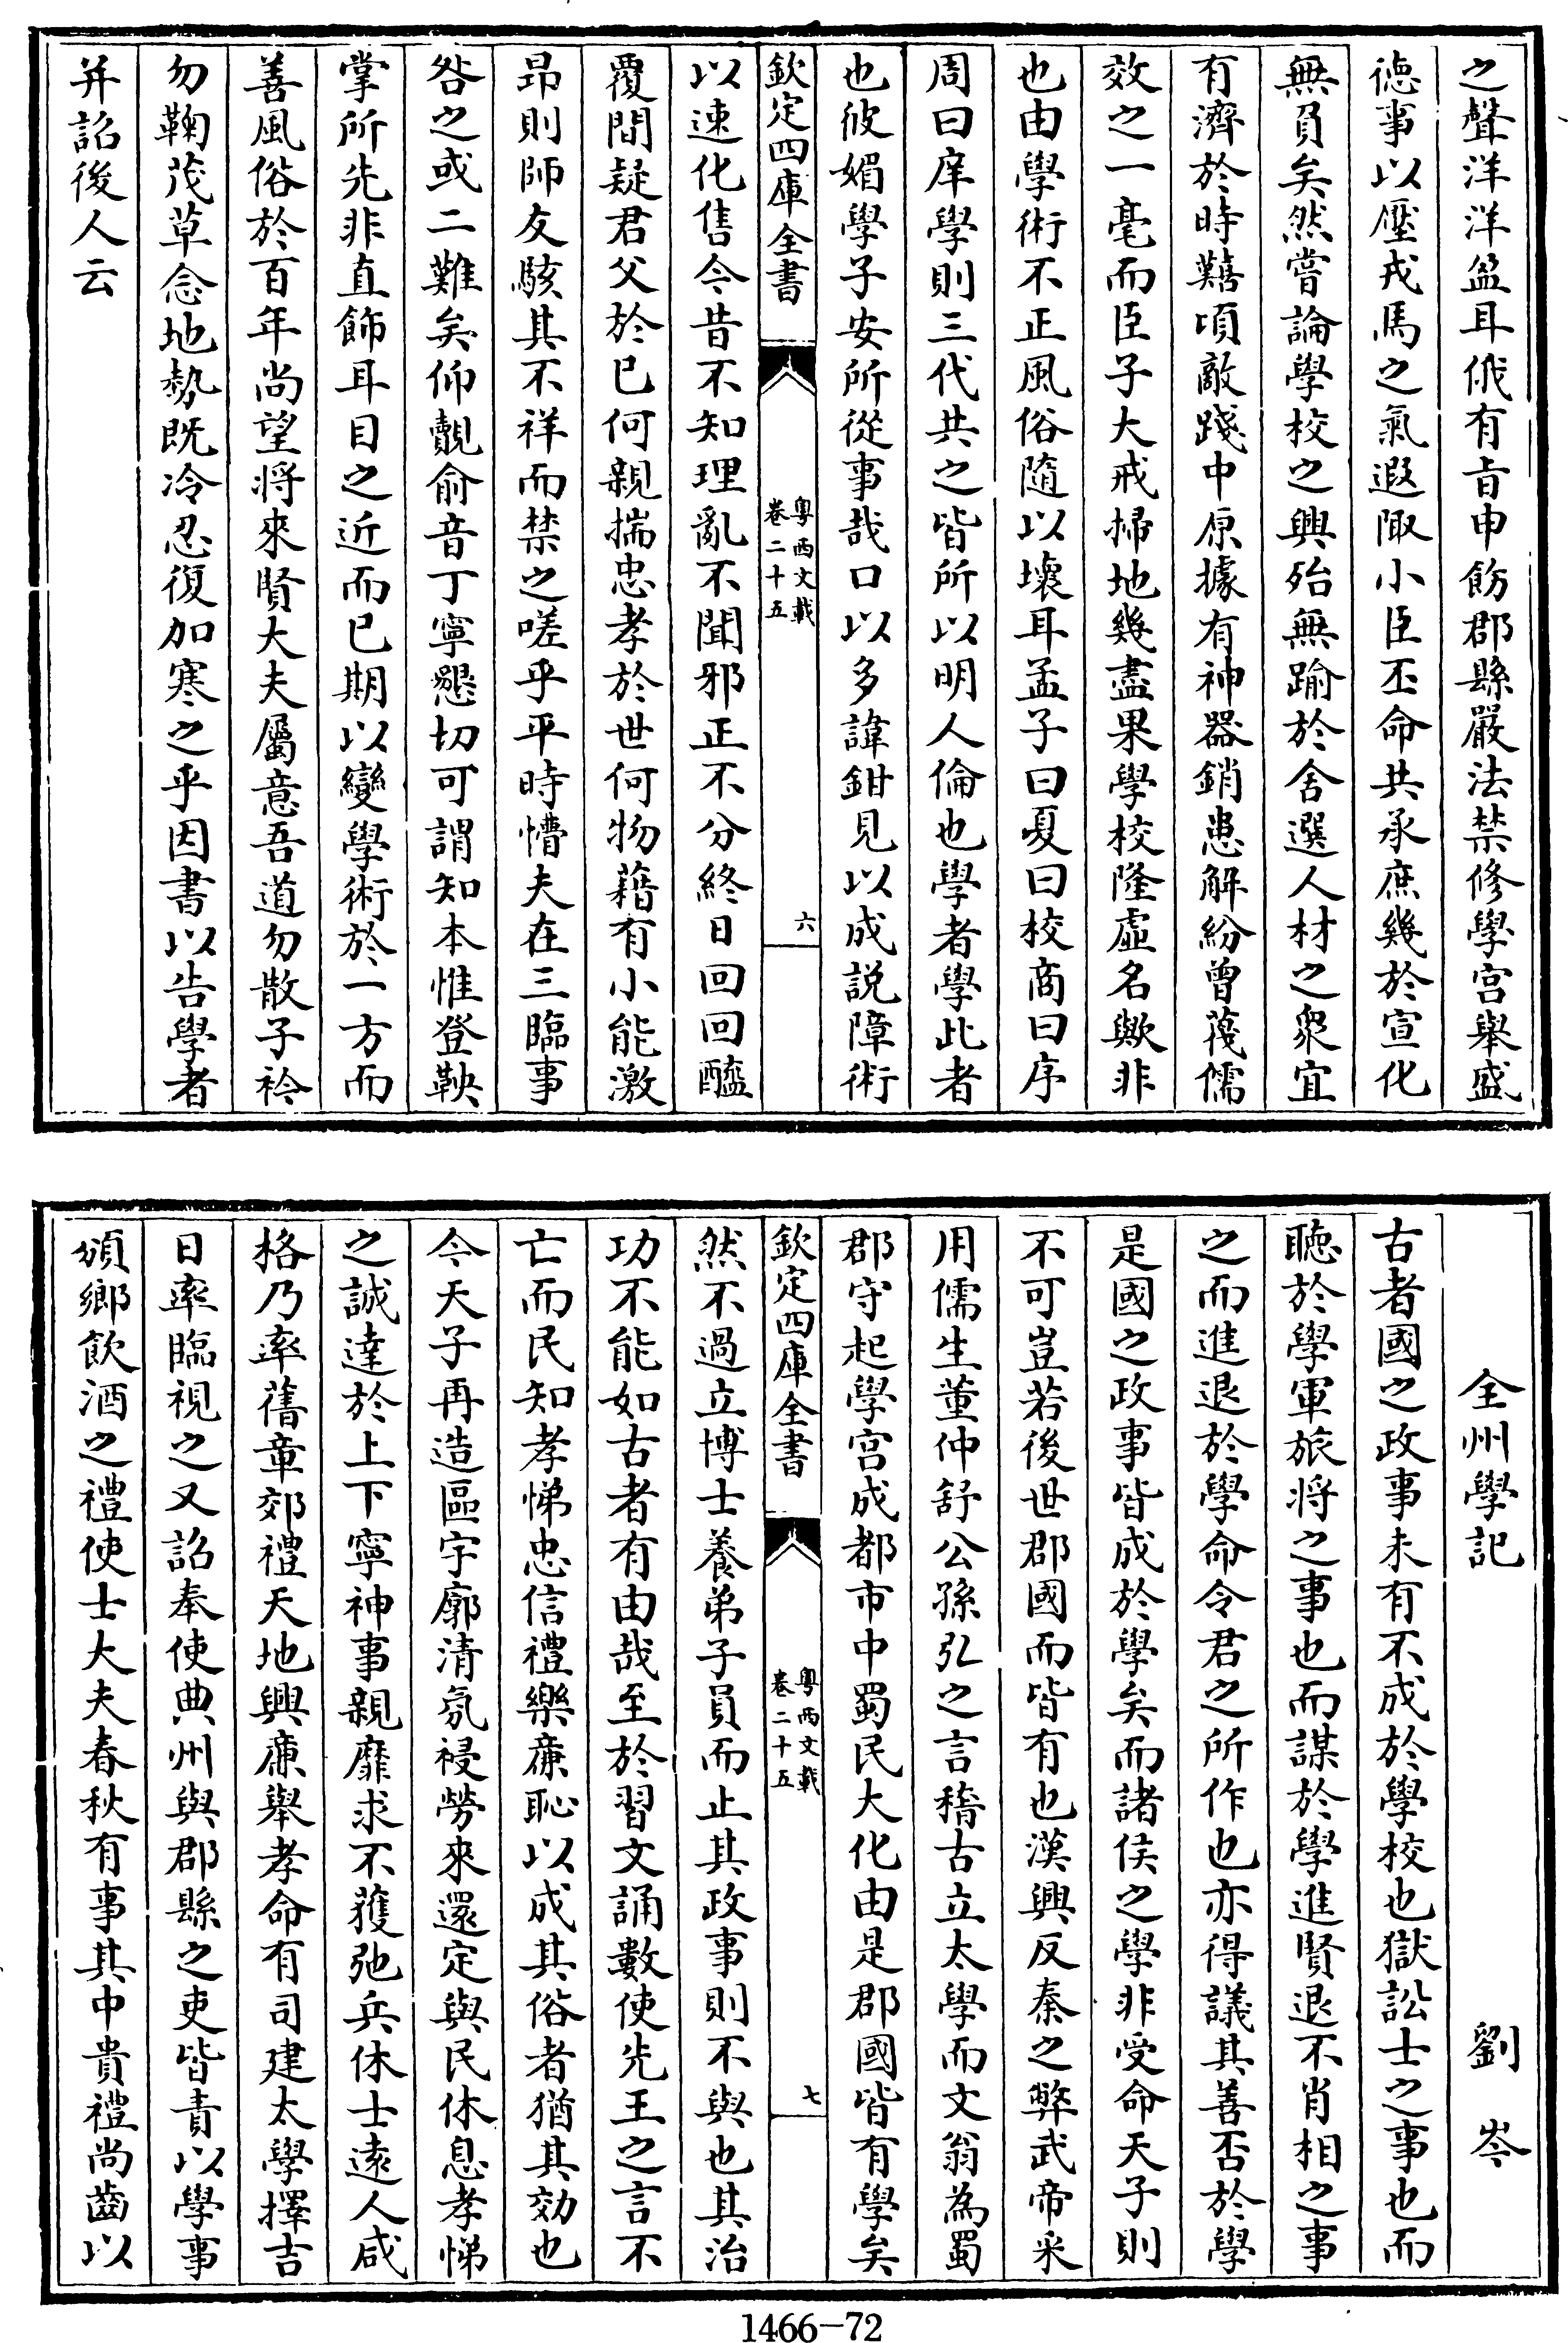 之聲洋洋盈耳俄有旨申飭郡縣嚴法禁修學宫舉盛
徳事以壓戎馬之氣遐陬小臣丕命共承庶幾於宣化
無負矣然嘗論學校之興殆無踰於舍選人材之衆宜
有濟於時囏頃敵踐中原據有神器銷患解紛曾蔑儒
效之一毫而臣子大戒掃地幾盡果學校隆虚名歟非
也由學術不正風俗隨以壞耳孟子曰夏曰校商曰序
周曰庠學則三代共之皆所以明人倫也學者學此者
也彼媚學子安所從事哉口以多諱鉗見以成説障術
欽定四庫全書
粤西文載
卷二十五
六
以速化售今昔不知理亂不聞邪正不分終日回回醯
覆間疑君父於已何親揣忠孝於世何物藉有小能激
昂則師友駭其不祥而禁之嗟乎平時懵夫在三臨事
咎之或二難矣仰觀俞音丁寧懇切可謂知本惟登鞅
掌所先非直飾耳目之近而已期以變學術於一方而
善風俗於百年尚望将來賢大夫屬意吾道勿散子衿
勿鞠茂草念地勢既冷忍復加寒之乎因書以告學者
并詔後人云
全州學記
劉岑
古者國之政事未有不成於學校也獄訟士之事也而
聽於學軍旅将之事也而謀於學進賢退不肖相之事
之而進退於學命令君之所作也亦得議其善否於學
是國之政事皆成於學矣而諸侯之學非受命天子則
不可豈若後世郡國而皆有也漢興反秦之弊武帝采
用儒生董仲舒公孫弘之言稽古立太學而文翁為蜀
郡守起學宫成都市中蜀民大化由是郡國皆有學矣
欽定四庫全書
粤西文載
卷二十五
七
然不過立博士養弟子員而止其政事則不與也其治
功不能如古者有由哉至於習文誦數使先王之言不
亡而民知孝悌忠信禮樂亷恥以成其俗者猶其効也
今天子再造區宇廓清氛祲勞來還定與民休息孝悌
之誠達於上下寧神事親靡求不獲弛兵休士逺人咸
格乃率舊章郊禮天地興亷舉孝命有司建太學擇吉
日率臨視之又詔奉使典州與郡縣之吏皆責以學事
頒鄉飲酒之禮使士大夫春秋有事其中貴禮尚齒以
1466-72